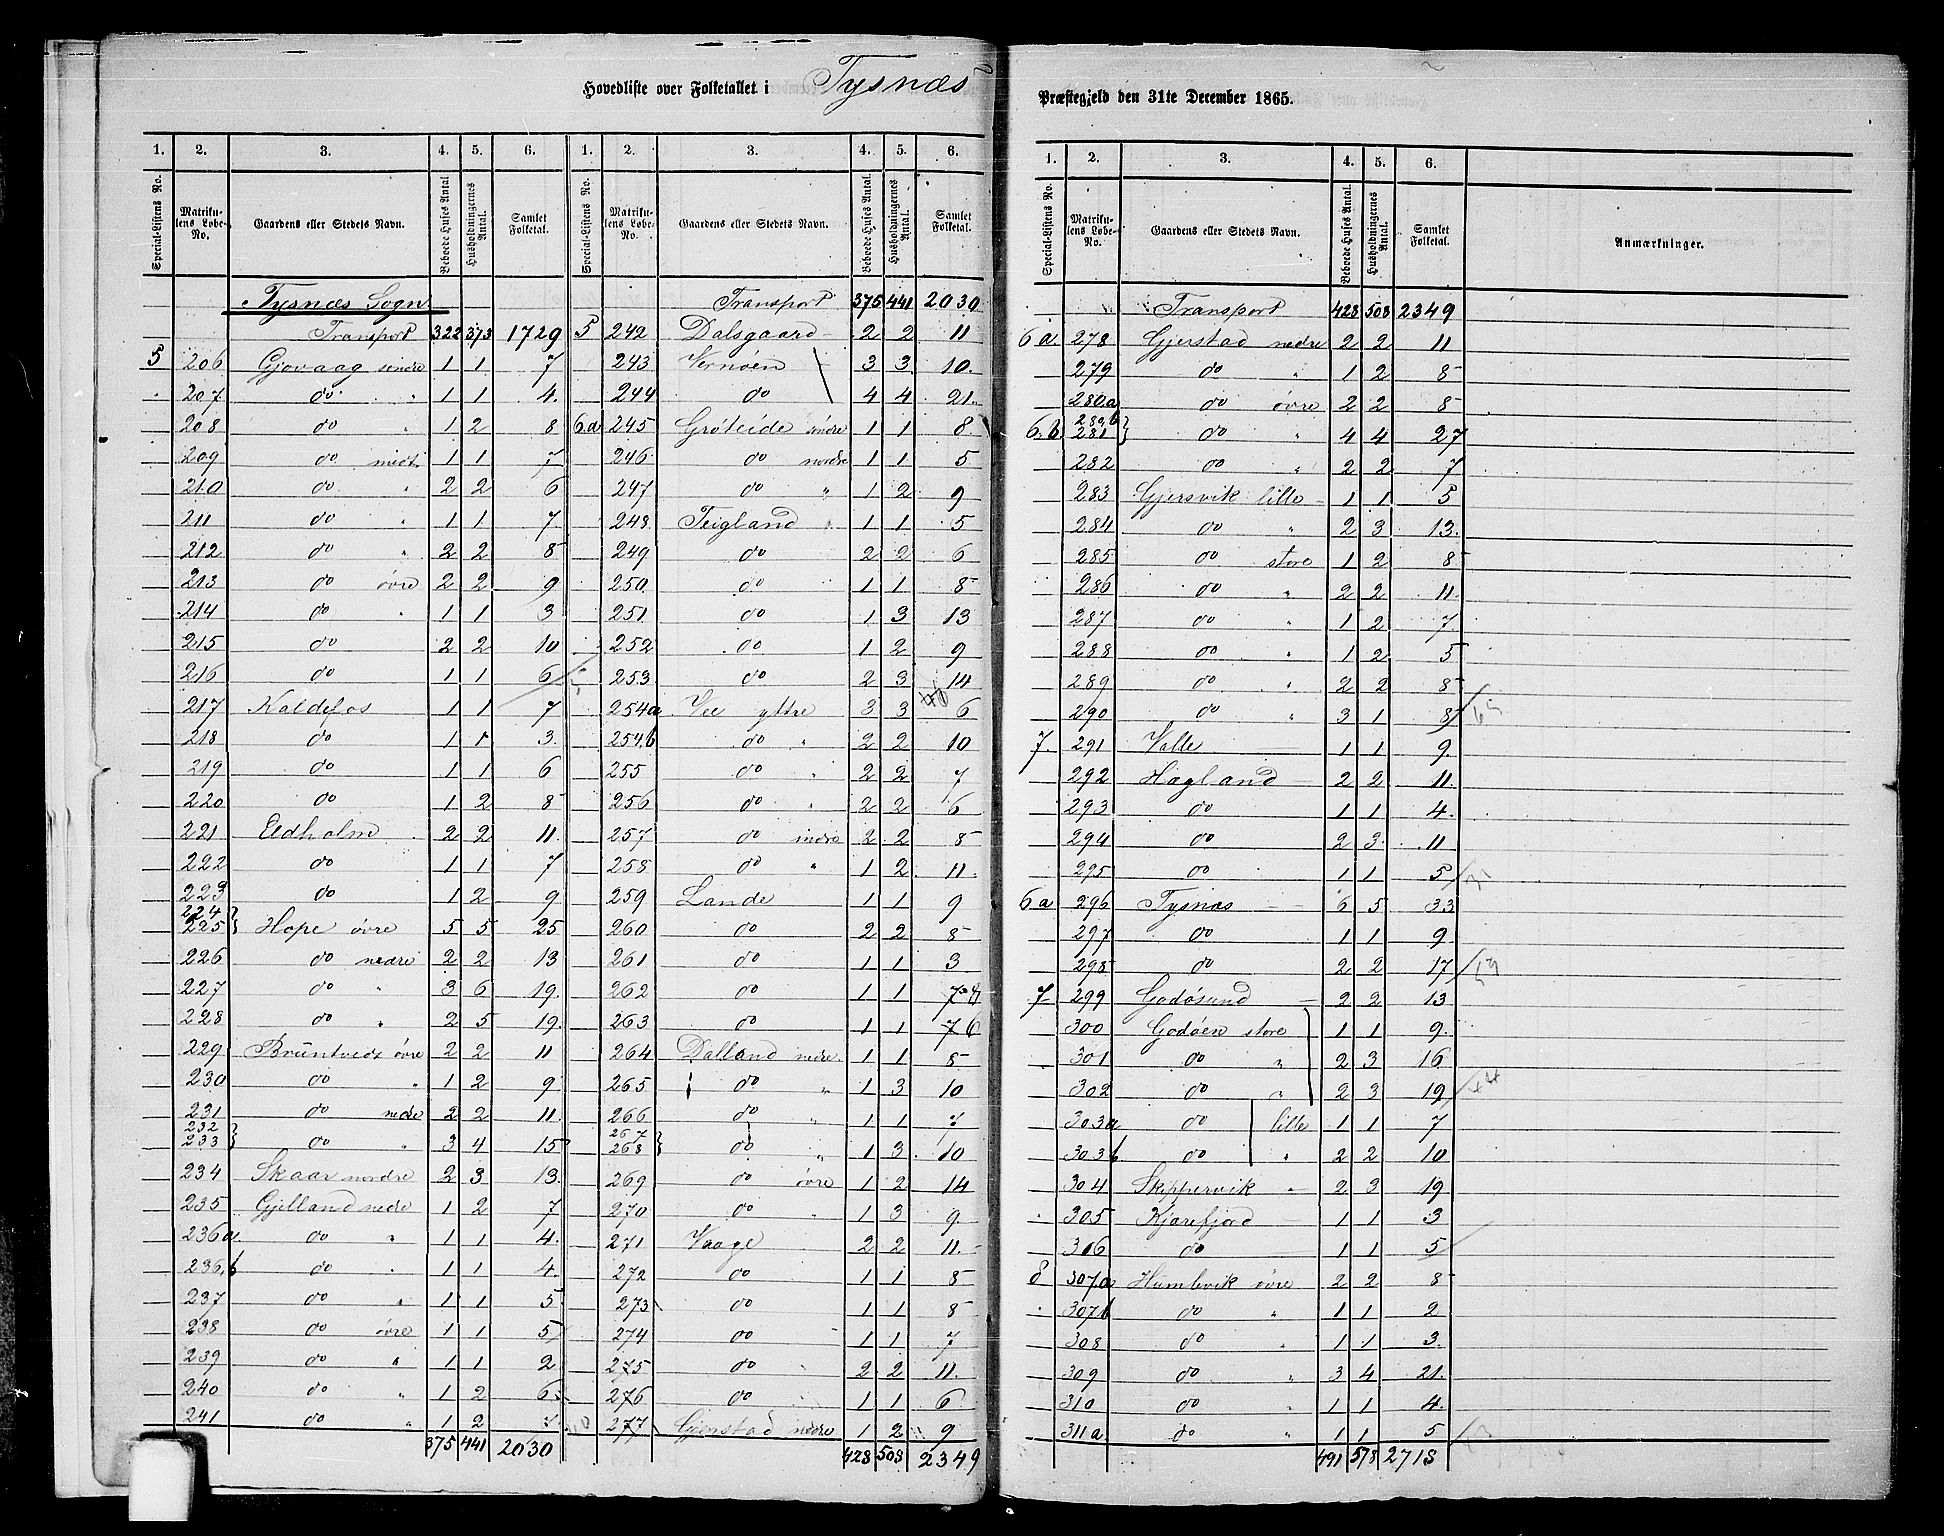 Hovedliste over Folketallet i Tysnæs
1. 2. 3. 4. 5. 6. 1. 2. 3. 4. 5. 6.
Special-Listens No. Matrikulens Løbe-No. Gaardens eller Stedets Navn. Beboede Huses Antal Husholdningernes Antal. Samlet Folketal. Special-Listens No. Matrikulens Løbe-No. Gaardens eller Stedets Navn. Beboede Huses Antal. Husholdningernes Antal. Samlet Folketal.
Tysnæs Sogn
Transport 322 373 1729
5 206 Gjovaag søndre 1 1 7
207 do " 1 1 4.
208 do " 1 2 8
209 do midt 1 1 7
210 do " 2 2 6
211 do " 1 1 7
212 do " 2 2 8
213 do øvre 2 2 9
214 do " 1 1 3
215 do 2 2 10
216 do 1 1 6
217 Kaldefos 1 1 7
218 do 1 1 3.
219 do 1 1 6
220 do 1 2 8
221 Eidholm 2 2 11.
222 do 1 1 7
223 do 1 2 9
224 225 } Hope øvre 5 5 25
226 do nedre 2 2 13
227 do " 3 6 19.
228 do " 2 5 19.
229 Bruntveit øvre 2 2 11
230 do " 1 2 9
231 do nedre 2 2 11.
232 233 } do " 3 4 15
234 Skaar nordre 2 3 13.
235 Gjelland nedre 1 2 7
236a do " 1 1 4.
236.b do " 1 1 4.
237 do " 1 1 5.
238 do øvre 1 1 5
239 do " 1 1 2
240 do " 1 2 6
241 do " 1 2 7
375 441 2030
Transport 375 441 2030
5 242 Dalsgaard 2 2 11
243 Vernøen 3 3 10.
244 do 4 4 21.
6.a 245 Grøteide søndre 1 1 8.
246 do nordre 1 1 5.
247 do " 1 2 9
248. Teigland " 1 1 5
249 do 2 2 6
250. do 1 1 8
251 do 1 3 13
252 do 1 2 9
253 do 2 3 14
254a Vee yttre 3 3 6
254.b do " 2 2 10
255 do " 2 2 7
256 do " 2 2 6
257 do indre 2 2 8
258 do " 1 2 11.
259 Lande 1 1 9
260 do 2 2 8
261 do 1 1 3
262 do 1 1 7
263 do 1 1 7 6
264 Dalland nedre. 1 1 8
265 do " 1 3 10
266 do " 1 1 7
267 268 } do " 1 3 10
269 do øvre 1 2 14
270 do " 1 3 9.
271 Vaage 2 2 11.
272 do 1 1 8
273 do 1 1 8
274 do 1 1 7
275 do 2 2 11.
276 do 1 1 6
277 Gjerstad nedre 1 2 9
428 508 2349
Præstegjeld den 31te December 1865.
1. 2. 3. 4. 5. 6.
Special-Listens No. Matrikulens Løbe-No. Gaardens eller Stedets Navn. Beboede Huses Antal. Husholdningernes Antal. Samlet Folketal. Anmærkninger.
Transport 428 508 2349
6a 278 Gjerstad nedre 2 2 11
279 do " 1 2 8
280.a do øvre 2 2 8
6.b 280.b 281 } do " 4 4 27
282 do " 2 2 7
283 Gjersvik lille 1 1 5
284 do " 2 3 13.
285 do store 1 2 8
286 do " 2 2 11.
287 do " 1 2 7.
288 do " 1 2 5
289 do " 2 2 8
290 do " 3 1 8
7. 291 Valle 1 1 9.
292 Hagland 2 2 11.
293 do 1 1 4.
294 do 2 3. 11
295 do 1 1 5 /31
6a 296 Tysnæs 6 5 33
297 do 1 1 9.
298 do 2 2 17 /59
7 299 Godøsund 2 2 13
300 Godøen store 1 1 9.
301 do " 2 3 16
302 do " 2 3 19 /44
303a do lille 1 1 7
303b do " 2 2 10
304 Skippervik 2 3 19
305 Kjærefjord 1 1 3
306 do 1 1 5
8 307.a Humlevik øvre 2 2 8
307b do " 1 1 2
308 do " 1 1 3.
309 do " 3 4 21.
310 do 1 1 4.
311a. do " 1 1 5
491 578 2718